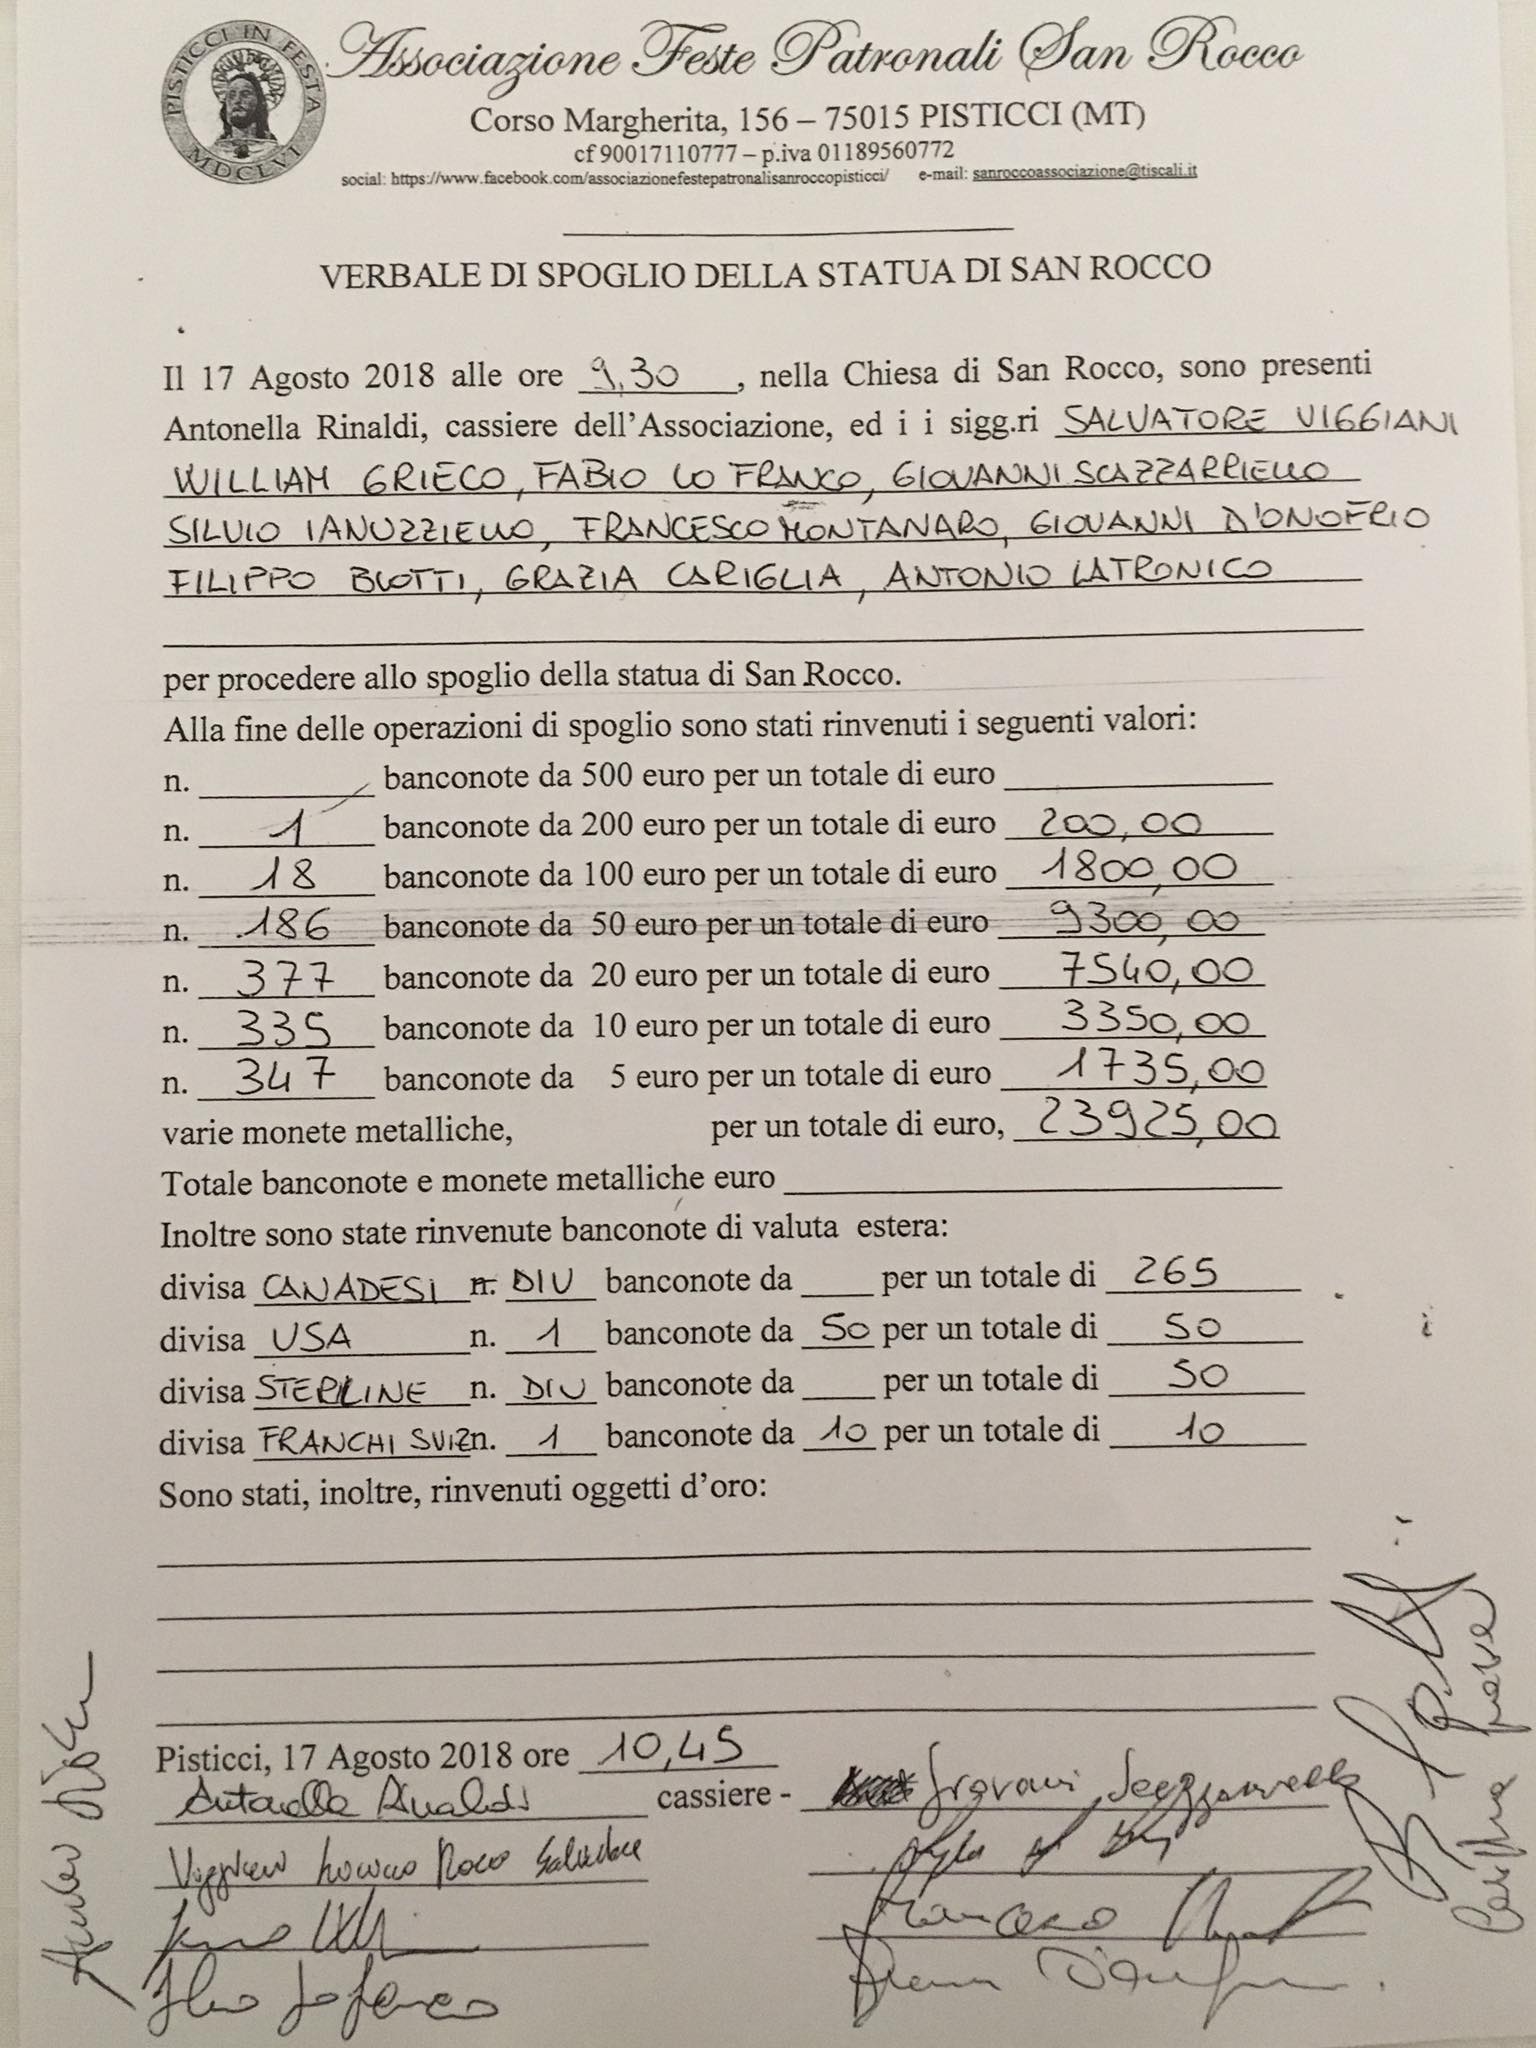 PISTICCI IN FESTA
MDCLVI
Associazione Feste Patronali San Rocco
Corso Margherita, 156 – 75015 PISTICCI (MT)
cf 90017110777 – p.iva 01189560772
social: https://www.facebook.com/associazionefestepatronalisanroccopisticci/ e-mail: sanroccoassociazione@tiscali.it
VERBALE DI SPOGLIO DELLA STATUA DI SAN ROCCO
Il 17 Agosto 2018 alle ore 9,30, nella Chiesa di San Rocco, sono presenti
Antonella Rinaldi, cassiere dell'Associazione, ed i i sigg.ri SALVATORE VIGGIANI
WILLIAM GRIECO, FABIO LO FRANCO, GIOVANNI SCAZZARRIELLO
SILVIO IANUZZIELLO, FRANCESCO MONTANARO, GIOVANNI D'ONOFRIO
FILIPPO BLOTTI, GRAZIA CARIGLIA, ANTONIO LATRONICO
per procedere allo spoglio della statua di San Rocco.
Alla fine delle operazioni di spoglio sono stati rinvenuti i seguenti valori:
n. banconote da 500 euro per un totale di euro
n. 1 banconote da 200 euro per un totale di euro 200,00
n. 18 banconote da 100 euro per un totale di euro 1800,00
n. 186 banconote da 50 euro per un totale di euro 9300,00
n. 377 banconote da 20 euro per un totale di euro 7540,00
n. 335 banconote da 10 euro per un totale di euro 3350,00
n. 347 banconote da 5 euro per un totale di euro 1735,00
varie monete metalliche, per un totale di euro, 23925,00
Totale banconote e monete metalliche euro
Inoltre sono state rinvenute banconote di valuta estera:
divisa CANADESI n. DIV banconote da per un totale di 265
divisa USA n. 1 banconote da 50 per un totale di 50
divisa STERLINE n. DIV banconote da per un totale di 50
divisa FRANCHI SVIZ n. 1 banconote da 10 per un totale di 10
Sono stati, inoltre, rinvenuti oggetti d'oro:
Pisticci, 17 Agosto 2018 ore 10,45
Antonella Rinaldi cassiere - Giovanni Scazzarriello
Rocco Salvatore
Francesco